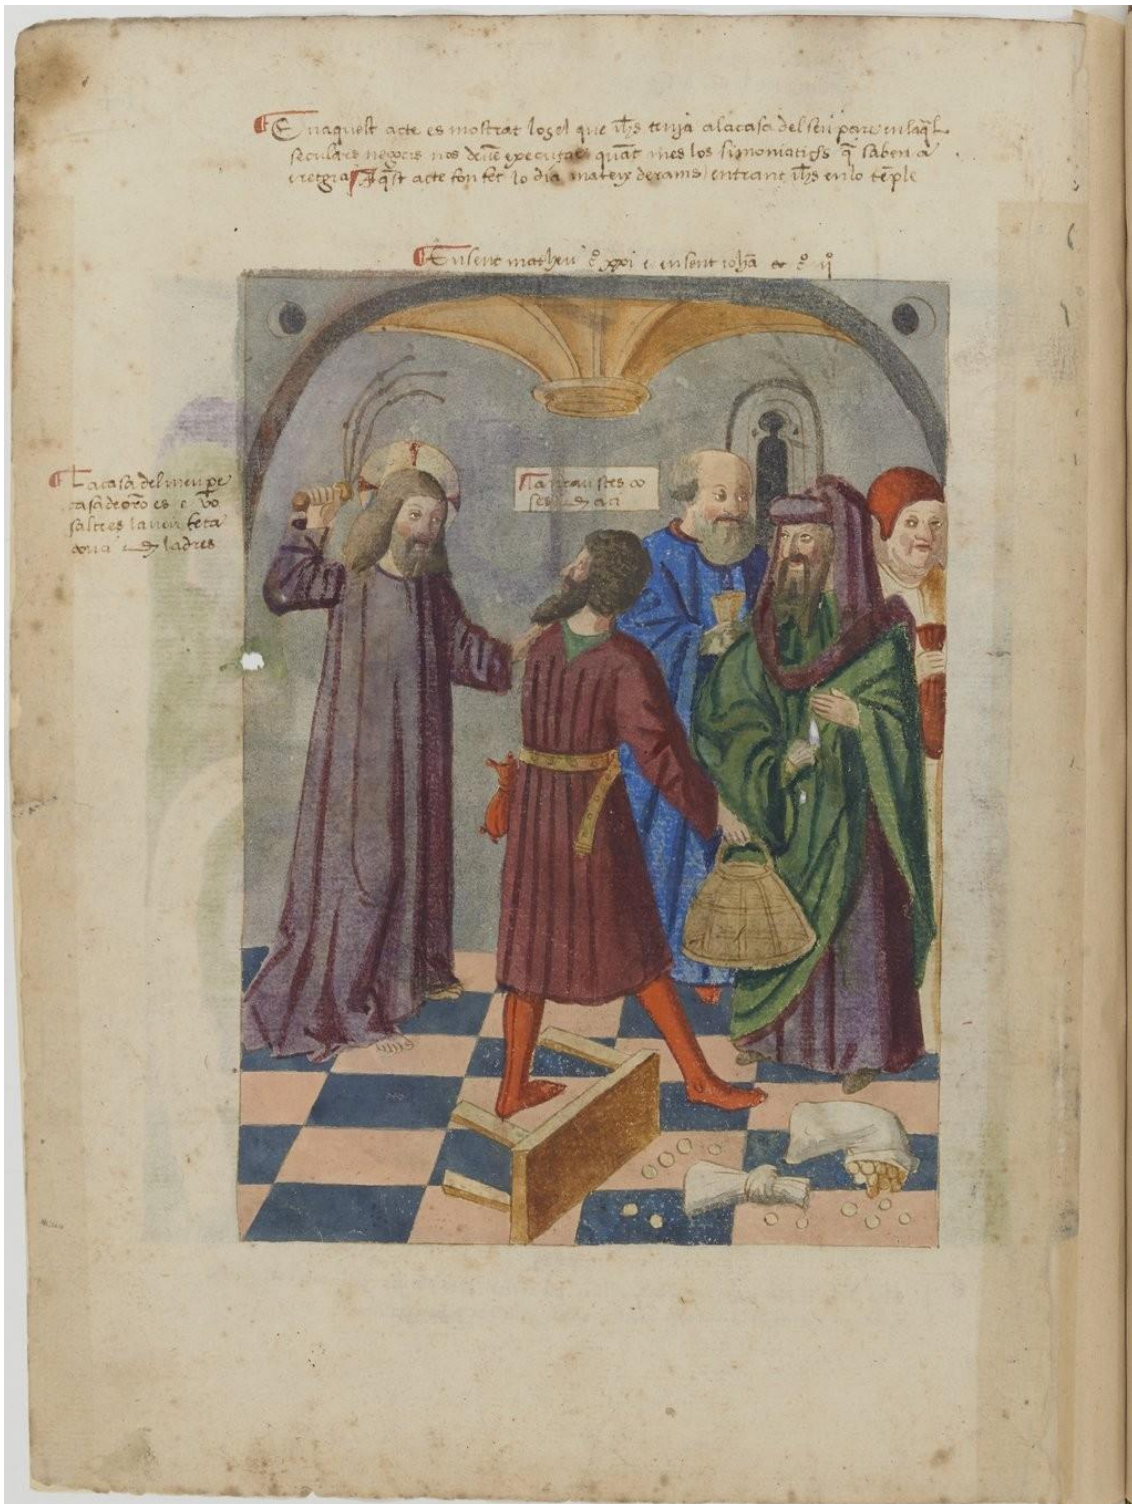 Enaquest acte es mostrat lozel que ihs tenja alacasa del seu pare enlaqual
seculars negocis nos deuen executar quant mes los simoniatichs q̃ saben a
eretgia Aq̃st acte fon fet lo dia mateix de rams entrant ihs enlo tẽple
Ensent matheu cº xxi e ensent johã cº ij
La casa del meu p̃e
casa de oro es e vo
saltres la aueu feta
coua de ladres
Lançau stes co
ses de aci